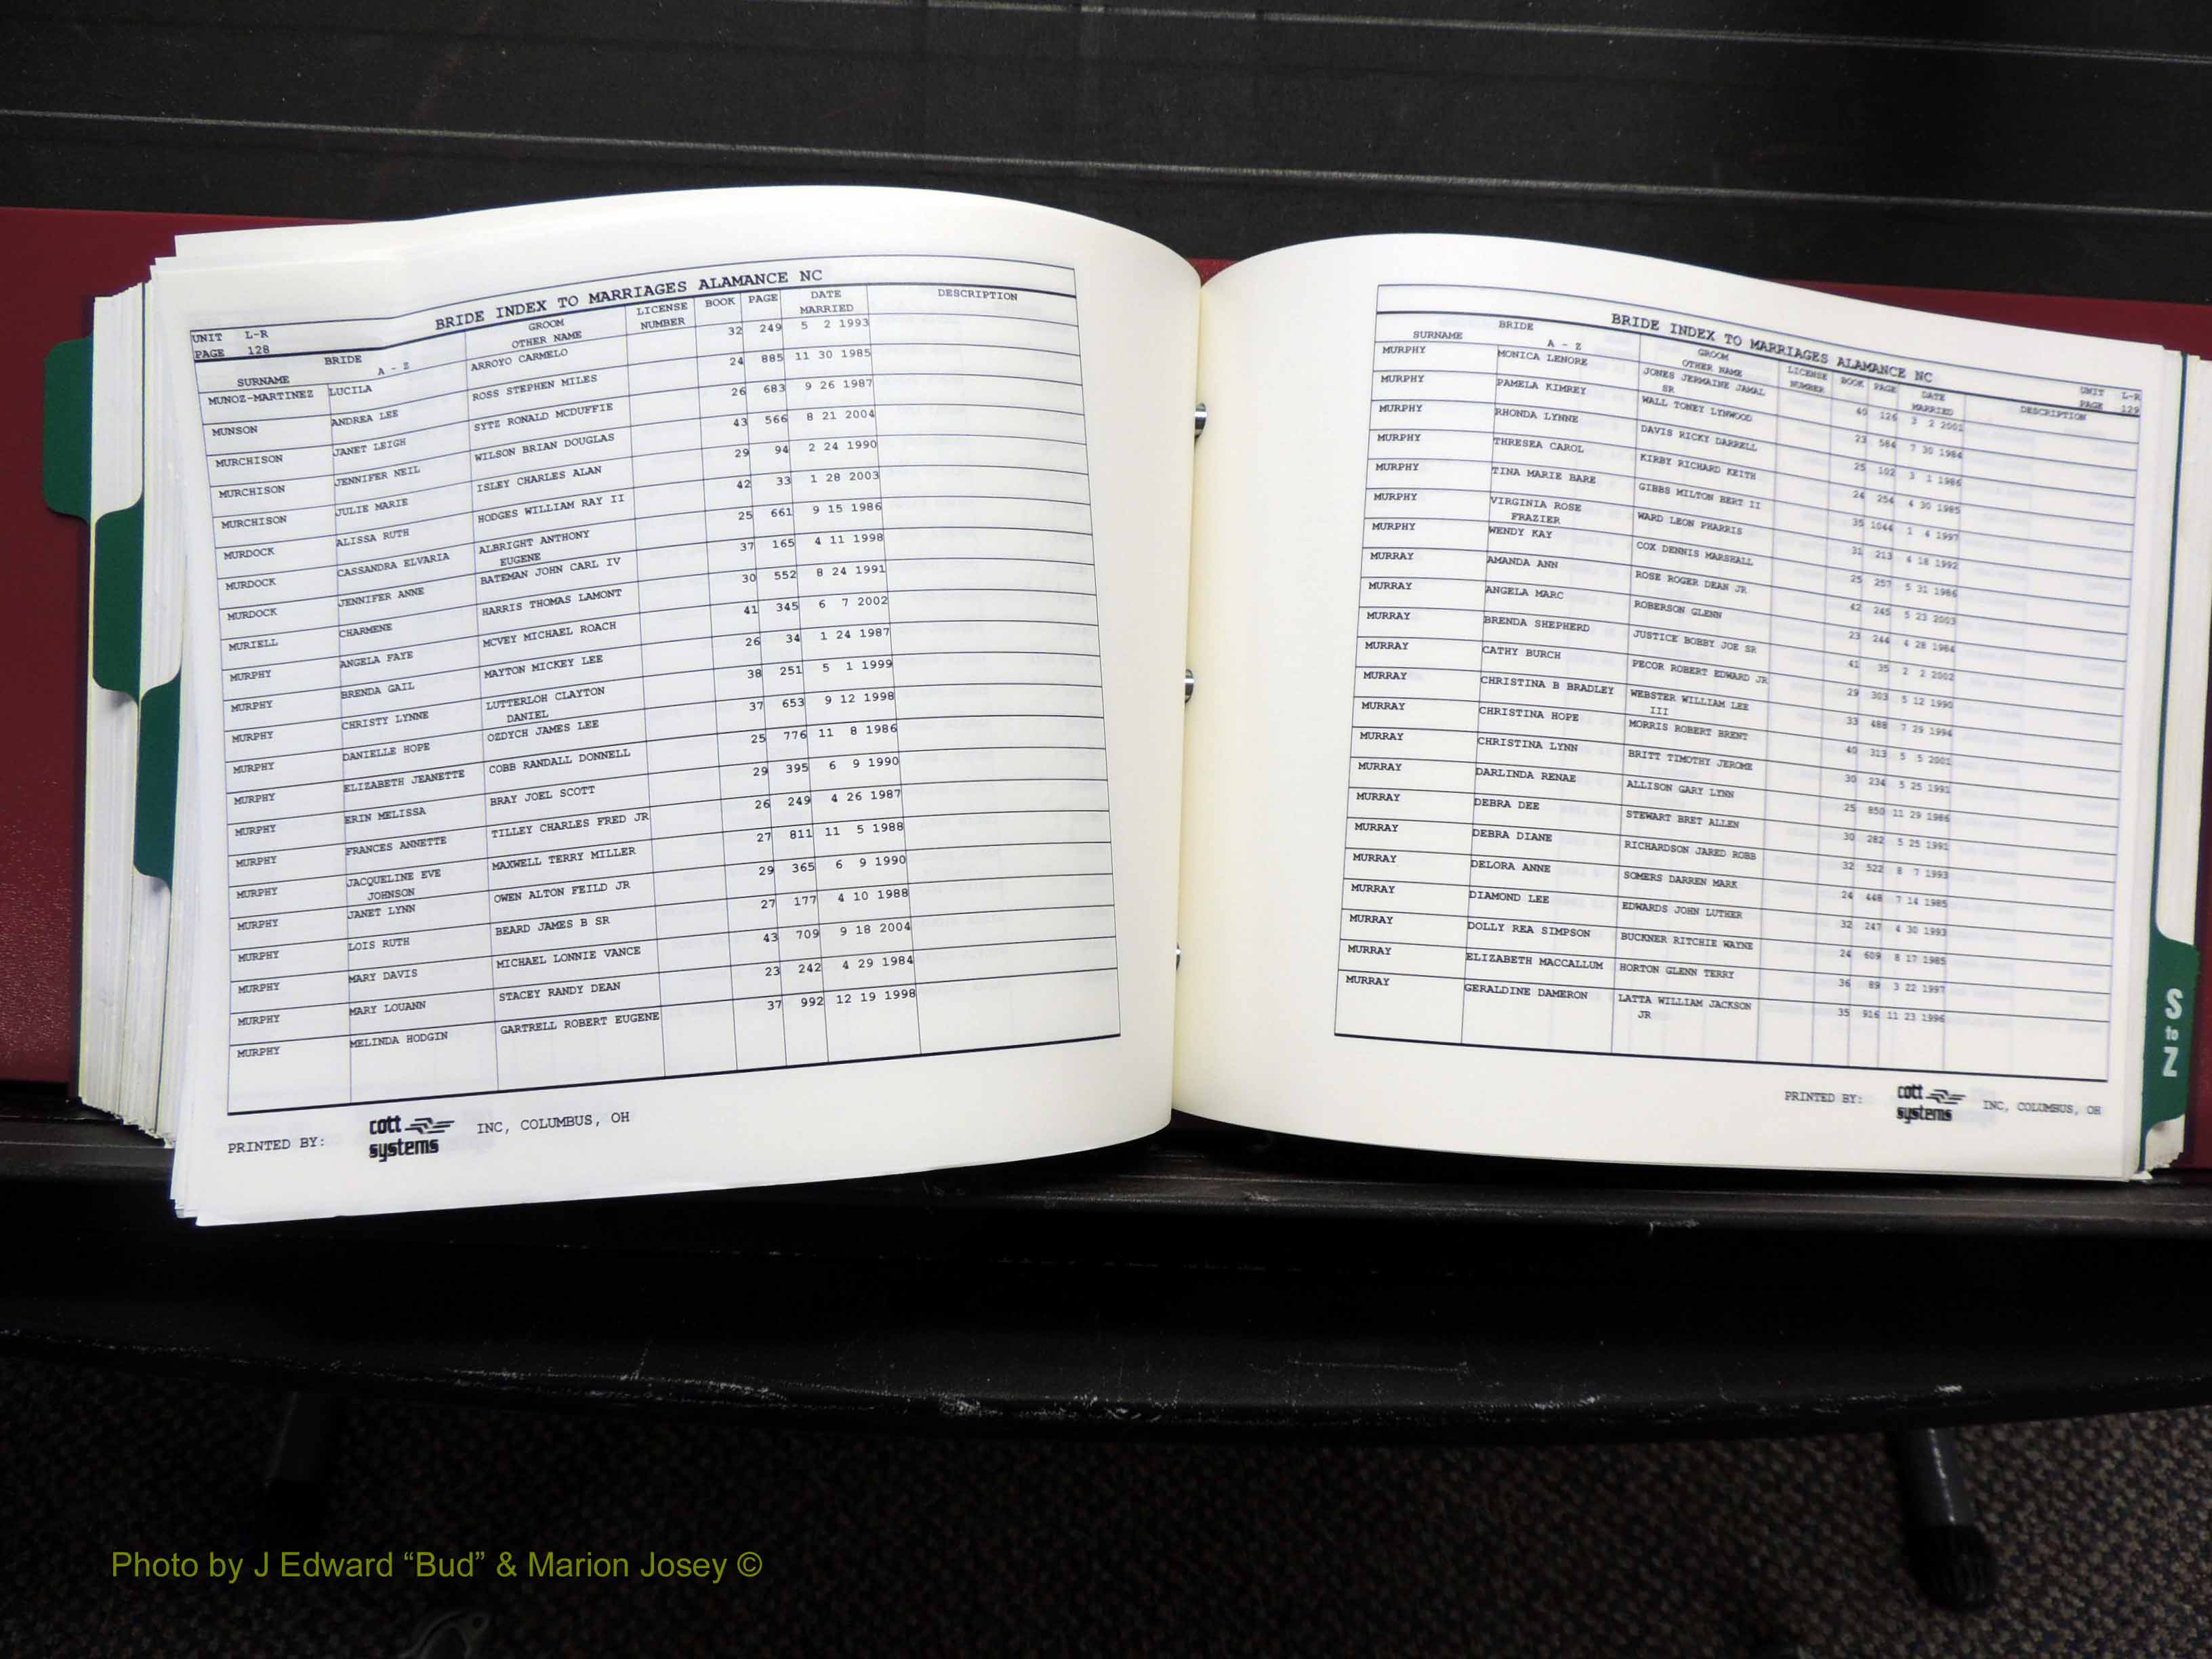 BRIDE INDEX TO MARRIAGES ALAMANCE NC
UNIT L-R
PAGE 128
BRIDE GROOM LICENSE BOOK PAGE DATE DESCRIPTION
SURNAME A - Z OTHER NAME NUMBER MARRIED
MUNOZ-MARTINEZ LUCILA ARROYO CARMELO 32 249 5 2 1993
MUNSON ANDREA LEE ROSS STEPHEN MILES 24 885 11 30 1985
MURCHISON JANET LEIGH SYTZ RONALD MCDUFFIE 26 683 9 26 1987
MURCHISON JENNIFER NEIL WILSON BRIAN DOUGLAS 43 566 8 21 2004
MURCHISON JULIE MARIE ISLEY CHARLES ALAN 29 94 2 24 1990
MURDOCK ALISSA RUTH HODGES WILLIAM RAY II 42 33 1 28 2003
MURDOCK CASSANDRA ELVARIA ALBRIGHT ANTHONY 25 661 9 15 1986
EUGENE
MURDOCK JENNIFER ANNE BATEMAN JOHN CARL IV 37 165 4 11 1998
MURIELL CHARMENE HARRIS THOMAS LAMONT 30 552 8 24 1991
MURPHY ANGELA FAYE MCVEY MICHAEL ROACH 41 345 6 7 2002
MURPHY BRENDA GAIL MAYTON MICKEY LEE 26 34 1 24 1987
MURPHY CHRISTY LYNNE LUTTERLOH CLAYTON 38 251 5 1 1999
DANIEL
MURPHY DANIELLE HOPE OZDYCH JAMES LEE 37 653 9 12 1998
MURPHY ELIZABETH JEANETTE COBB RANDALL DONNELL 25 776 11 8 1986
MURPHY ERIN MELISSA BRAY JOEL SCOTT 29 395 6 9 1990
MURPHY FRANCES ANNETTE TILLEY CHARLES FRED JR 26 249 4 26 1987
MURPHY JACQUELINE EVE MAXWELL TERRY MILLER 27 811 11 5 1988
JOHNSON
MURPHY JANET LYNN OWEN ALTON FEILD JR 29 365 6 9 1990
MURPHY LOIS RUTH BEARD JAMES B SR 27 177 4 10 1988
MURPHY MARY DAVIS MICHAEL LONNIE VANCE 43 709 9 18 2004
MURPHY MARY LOUANN STACEY RANDY DEAN 23 242 4 29 1984
MURPHY MELINDA HODGIN GARTRELL ROBERT EUGENE 37 992 12 19 1998
PRINTED BY: cott systems INC, COLUMBUS, OH
BRIDE INDEX TO MARRIAGES ALAMANCE NC
UNIT L-R
PAGE 129
BRIDE GROOM LICENSE BOOK PAGE DATE DESCRIPTION
SURNAME A - Z OTHER NAME NUMBER MARRIED
MURPHY MONICA LENORE JONES JERMAINE JAMAL 40 126 3 2 2001
SR
MURPHY PAMELA KIMREY WALL TONEY LYNWOOD 23 584 7 30 1984
MURPHY RHONDA LYNNE DAVIS RICKY DARRELL 25 102 3 1 1986
MURPHY THRESEA CAROL KIRBY RICHARD KEITH 24 254 4 30 1985
MURPHY TINA MARIE BARE GIBBS MILTON BERT II 35 1044 1 4 1997
MURPHY VIRGINIA ROSE WARD LEON PHARRIS 31 213 4 18 1992
FRAZIER
MURPHY WENDY KAY COX DENNIS MARSHALL 25 257 5 31 1986
MURRAY AMANDA ANN ROSE ROGER DEAN JR 42 245 5 23 2003
MURRAY ANGELA MARC ROBERSON GLENN 23 244 4 28 1984
MURRAY BRENDA SHEPHERD JUSTICE BOBBY JOE SR 41 35 2 2 2002
MURRAY CATHY BURCH PECOR ROBERT EDWARD JR 29 303 5 12 1990
MURRAY CHRISTINA B BRADLEY WEBSTER WILLIAM LEE 33 488 7 29 1994
III
MURRAY CHRISTINA HOPE MORRIS ROBERT BRENT 40 313 5 5 2001
MURRAY CHRISTINA LYNN BRITT TIMOTHY JEROME 30 234 5 25 1991
MURRAY DARLINDA RENAE ALLISON GARY LYNN 25 850 11 29 1986
MURRAY DEBRA DEE STEWART BRET ALLEN 30 282 5 25 1991
MURRAY DEBRA DIANE RICHARDSON JARED ROBB 32 522 8 7 1993
MURRAY DELORA ANNE SOMERS DARREN MARK 24 448 7 14 1985
MURRAY DIAMOND LEE EDWARDS JOHN LUTHER 32 247 4 30 1993
MURRAY DOLLY REA SIMPSON BUCKNER RITCHIE WAYNE 24 609 8 17 1985
MURRAY ELIZABETH MACCALLUM HORTON GLENN TERRY 36 89 3 22 1997
MURRAY GERALDINE DAMERON LATTA WILLIAM JACKSON 35 916 11 23 1996
JR
PRINTED BY: cott systems INC, COLUMBUS, OH
S
to
Z
Photo by J Edward “Bud” & Marion Josey ©